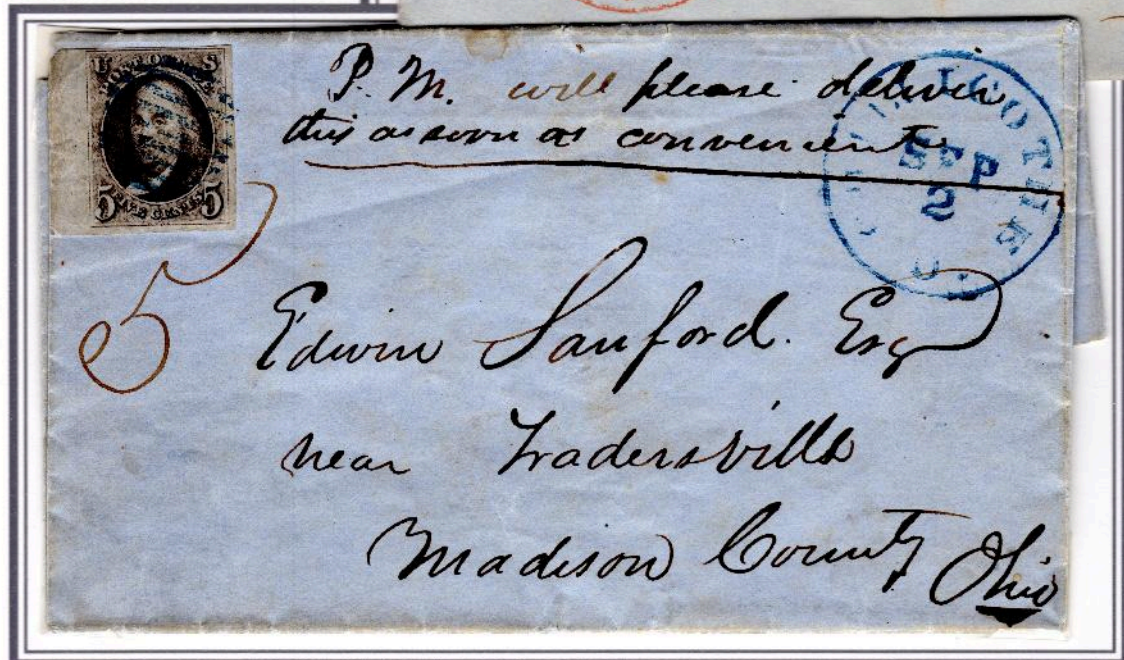 U S
POST OFFICE
5 FIVE CENTS 5
P. M. will please deliver
this as soon as convenient
CHILLICOTHE O.
SEP
2
5
Edwin Sanford. Esq
near Tradersville
Madison County Ohio